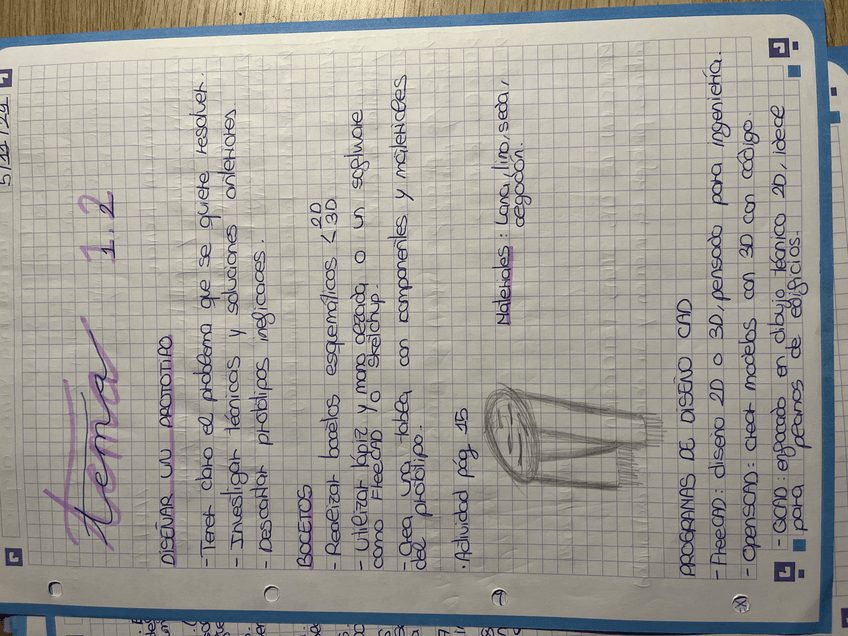 5/11/24
Tema 1.2
DISEÑAR UN PROTOTIPO
- Tener claro el problema que se quiere resolver.
- Investigar técnicas y soluciones anteriores
- Descartar prototipos ineficaces.
BOCETOS
- Realizar bocetos esquemáticos < 2D
3D
- Utilizar lápiz y mano alzada o un software
como FreeCAD o Sketchup.
- Crea una tabla con componentes y materiales
del prototipo.
· Actividad pág 15
Materiales: Lana, lino, seda,
algodón.
PROGRAMAS DE DISEÑO CAD
- FreeCAD: diseño 2D o 3D, pensado para ingeniería.
- OpenSCAD: crear modelos con 3D con código.
- QCAD: enfocado en dibujo técnico 2D, ideal
para planos de edificios.